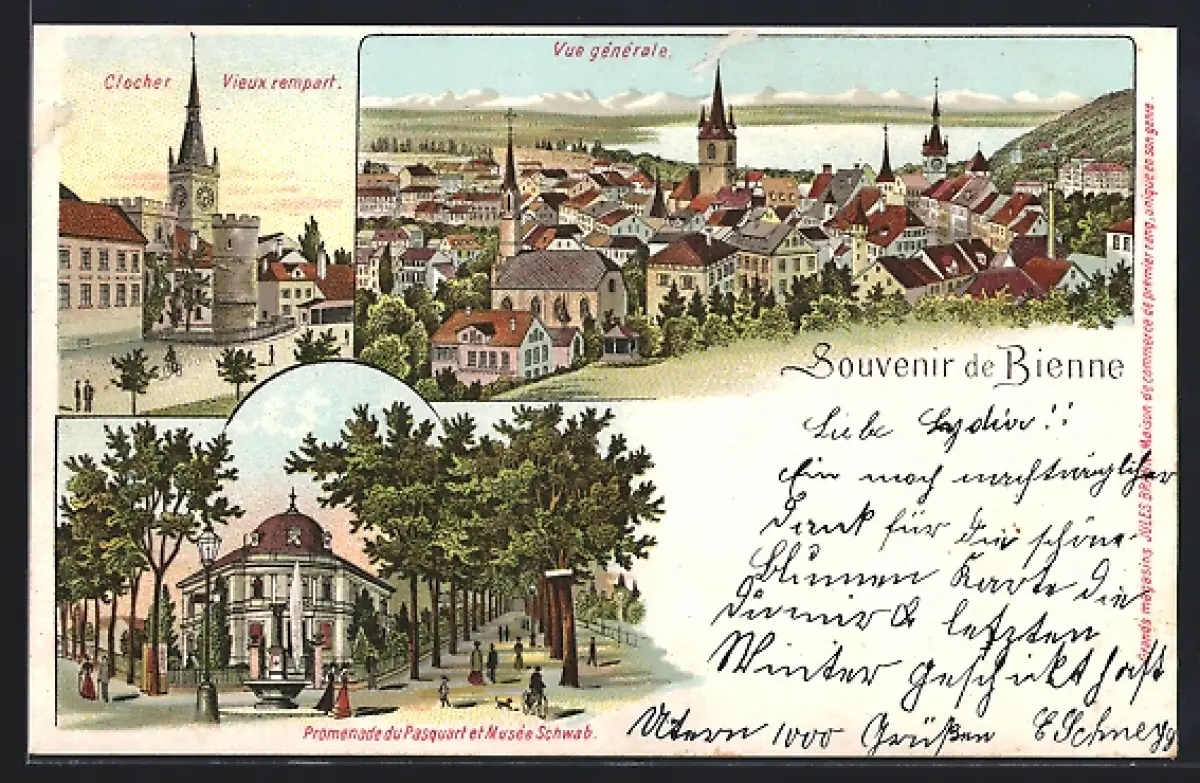 Clocher Vieux rempart.
Vue générale.
Souvenir de Bienne
Liebe Lydia!!
Ein noch nachträglicher
Dank für die schöne
Blumen Karte die
du mir letzten
Winter geschickt hast
1000 Grüßen E Schneyg
Promenade du Pasquart et Musée Schwab.
Grands magasins JULES BRANN Maison de commerce de premier rang, unique en son genre.